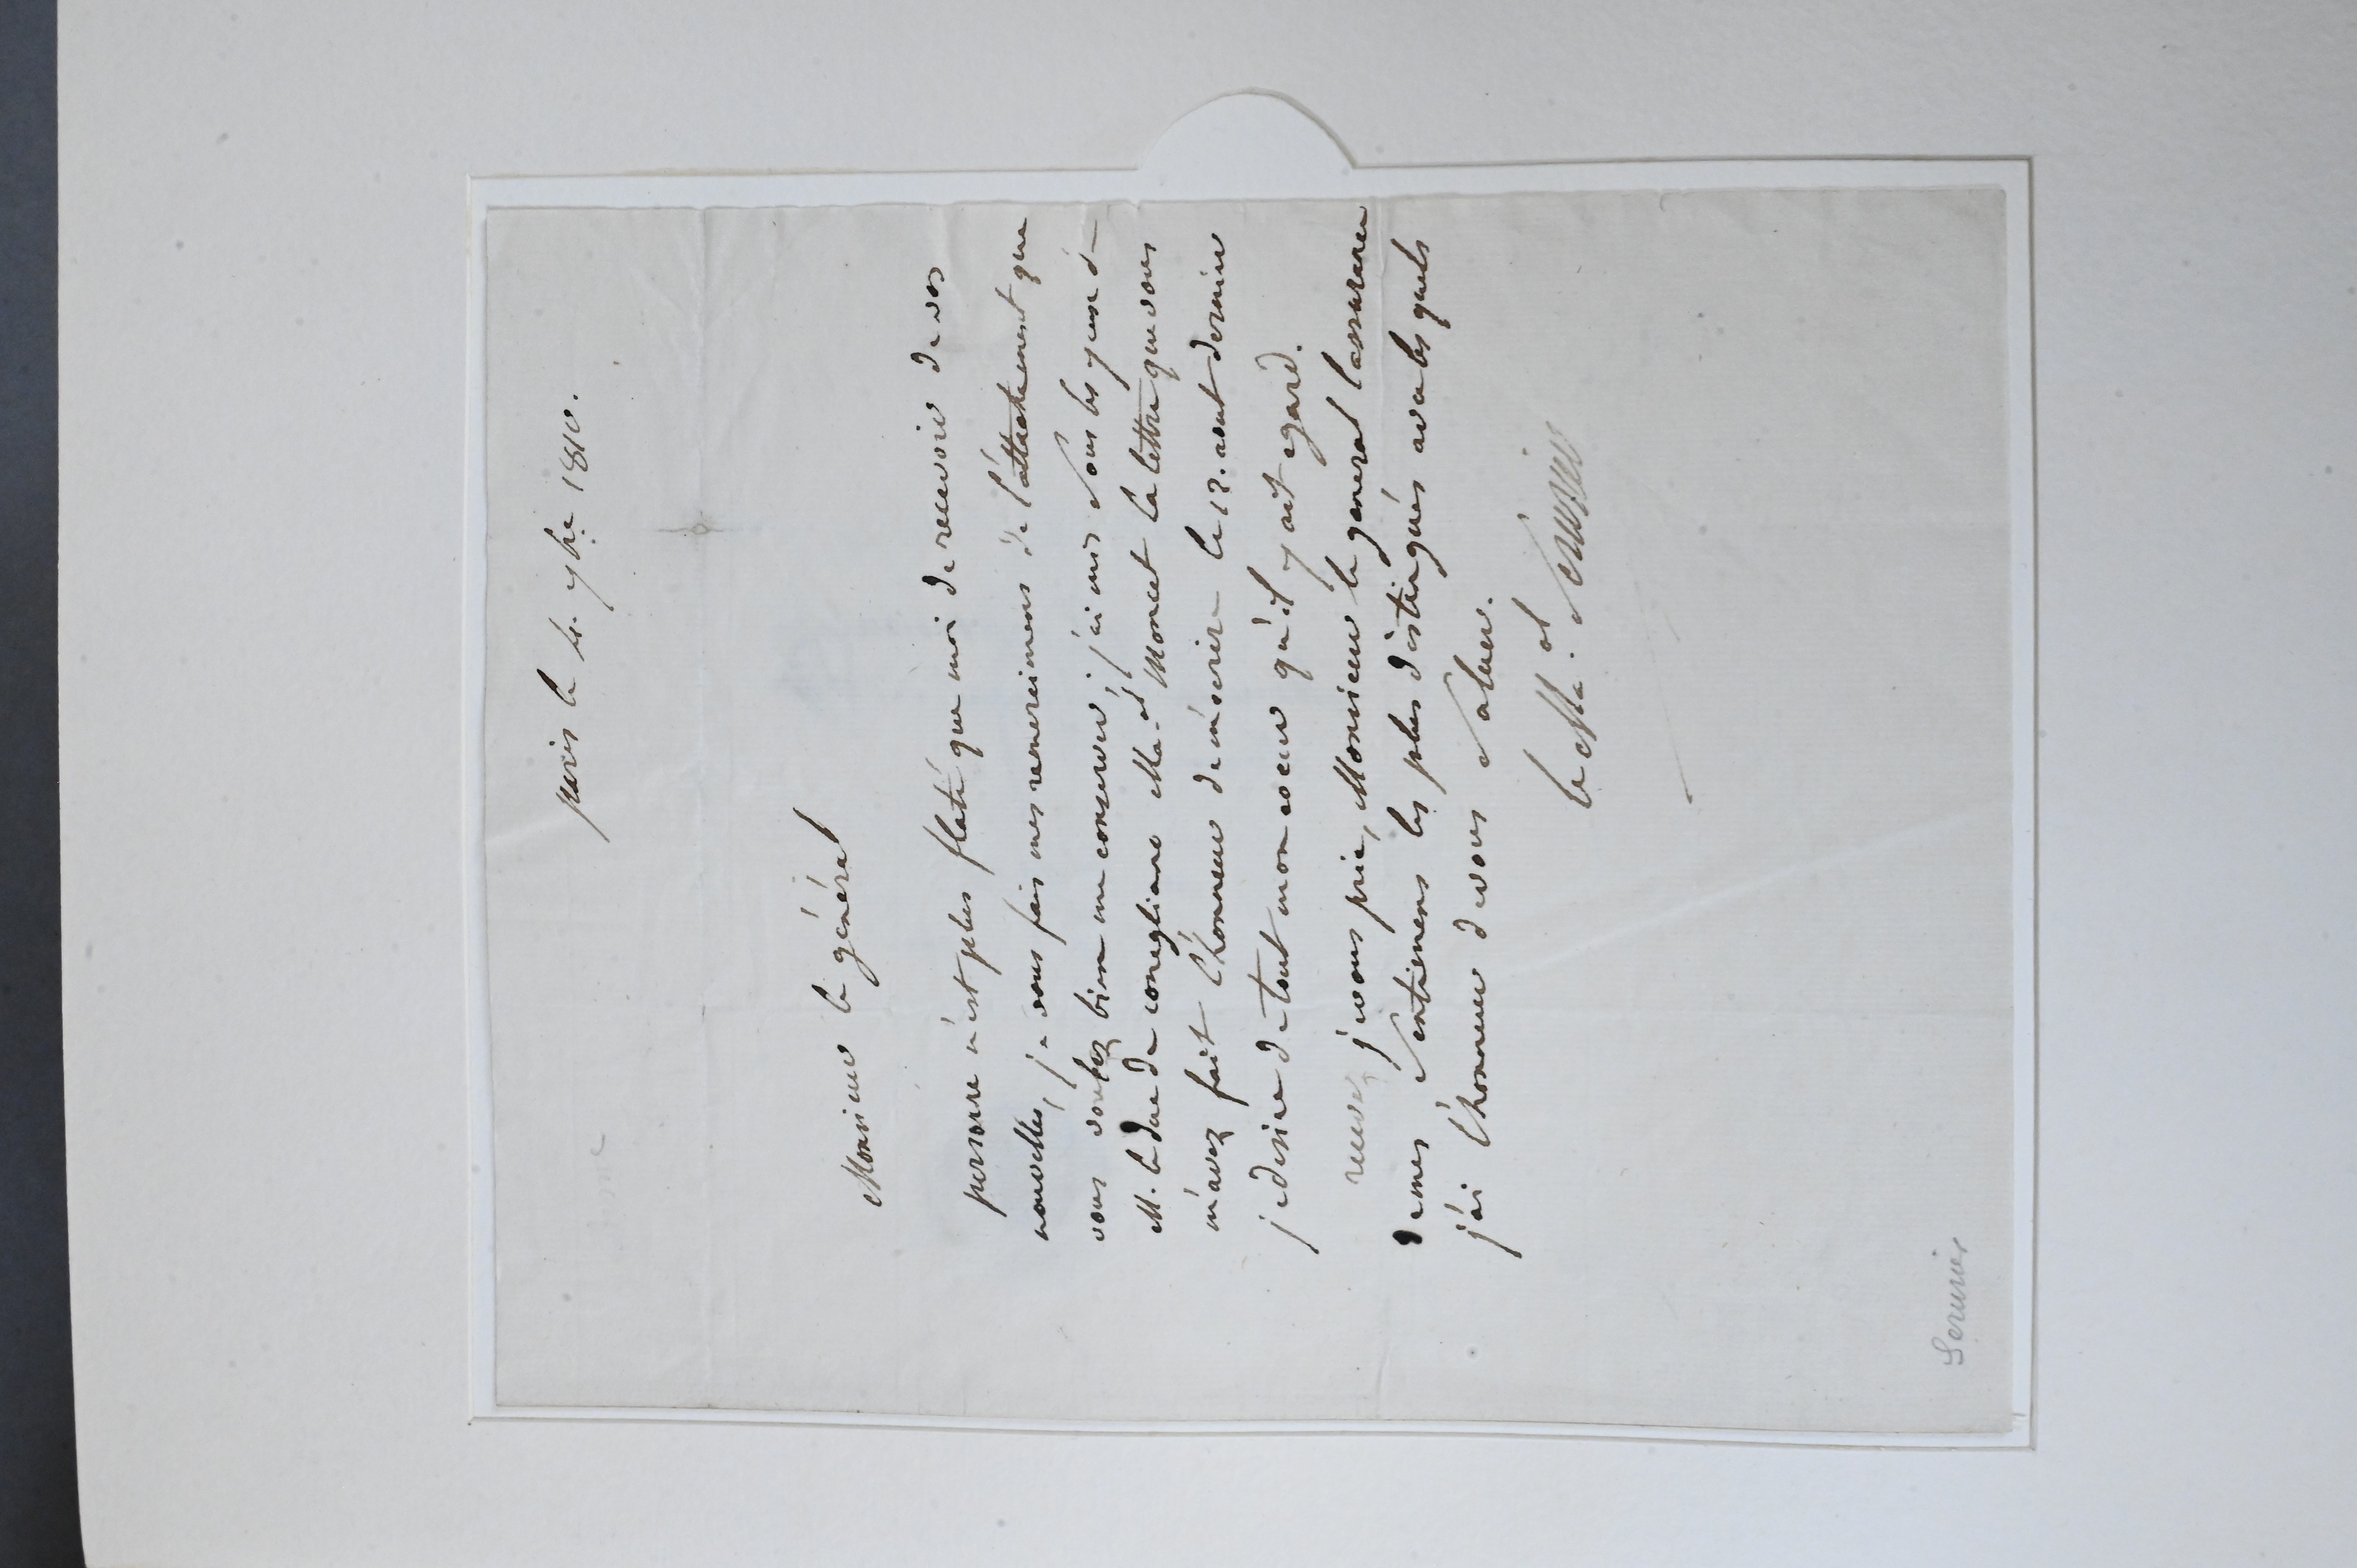 paris le 4. 7bre 1810.
Monsieur le général
personne n'est plus flaté que moi de recevoir de vos
nouvelles, je vous fais mes remercimens de l'attachement que
vous voulez bien me conserver; j'ai mis sous les yeux de
M. le duc de conegliano Ma.al Moncet la lettre que vous
m'avez fait l'honneur de m'ecrire le 17. aout dernier
je desire de tout mon coeur qu'il y ait egard.
recevez, je vous prie, Monsieur le general l'assurance
de mes sentimens les plus distingués avec les quels
j'ai l'honneur de vous saluer.
le Ma.al Serurier
Serurier